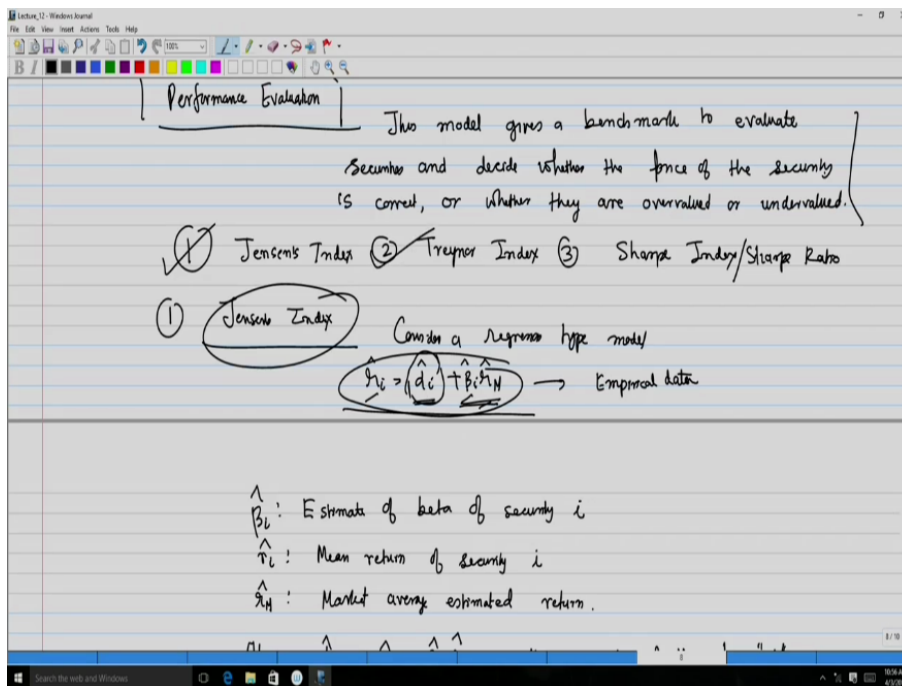 Lecture_12 - Windows Journal
File Edit View Insert Actions Tools Help
100%
B I
Performance Evaluation
This model gives a benchmark to evaluate
securities and decide whether the price of the security
is correct, or whether they are overvalued or undervalued.
① Jensen's Index ② Treynor Index ③ Sharpe Index/Sharpe Ratio
① Jensen's Index
Consider a regression type model
r̂i = α̂i + β̂i r̂M → Empirical data
β̂i : Estimate of beta of security i
r̂i : Mean return of security i
r̂M : Market average estimated return.
8 / 10
8
Search the web and Windows
10:56 A